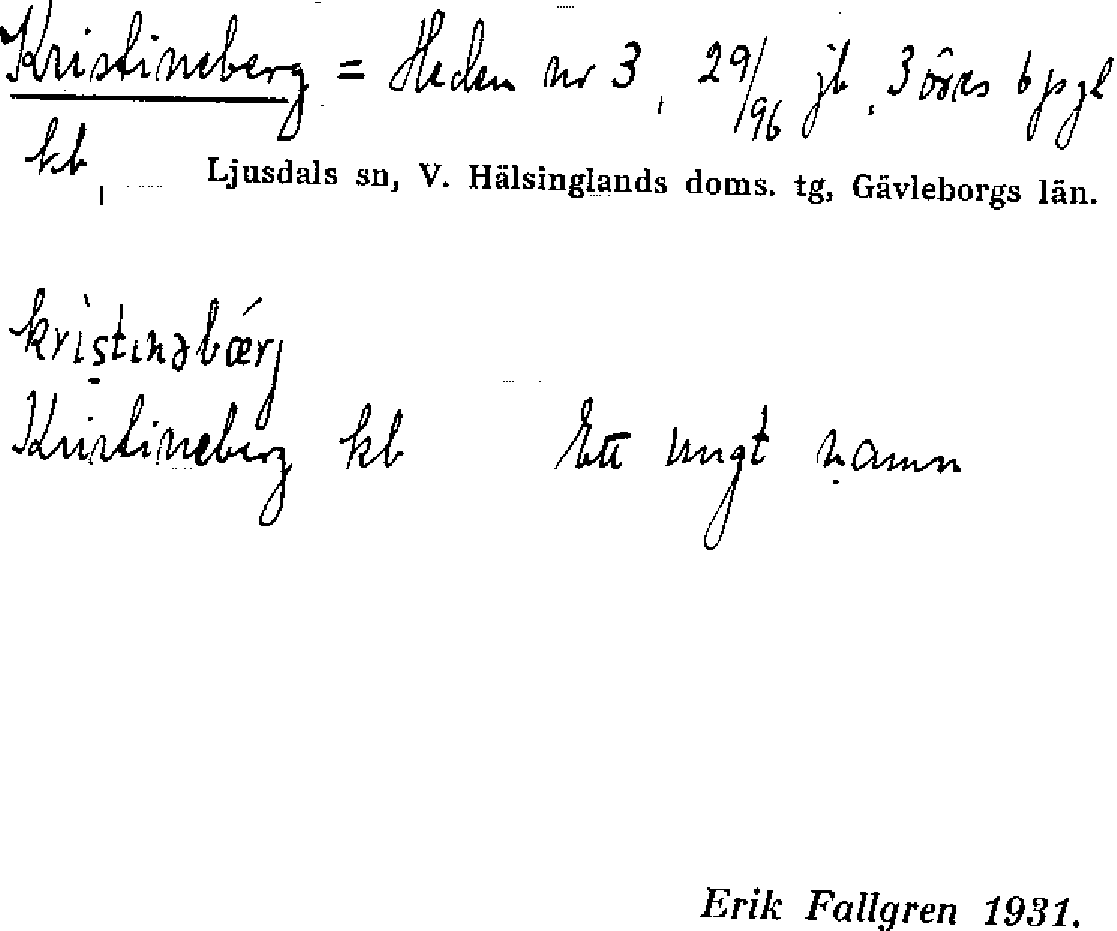 Kristineberg = Heden nr 3, 29/96 jb, 3 öres 6 pgl
kb, Ljusdals sn, V. Hälsinglands doms. tg, Gävleborgs län.
krìstɩnəbǽrj
Kristineberg kb Ett ungt namn
Erik Fallgren 1931.